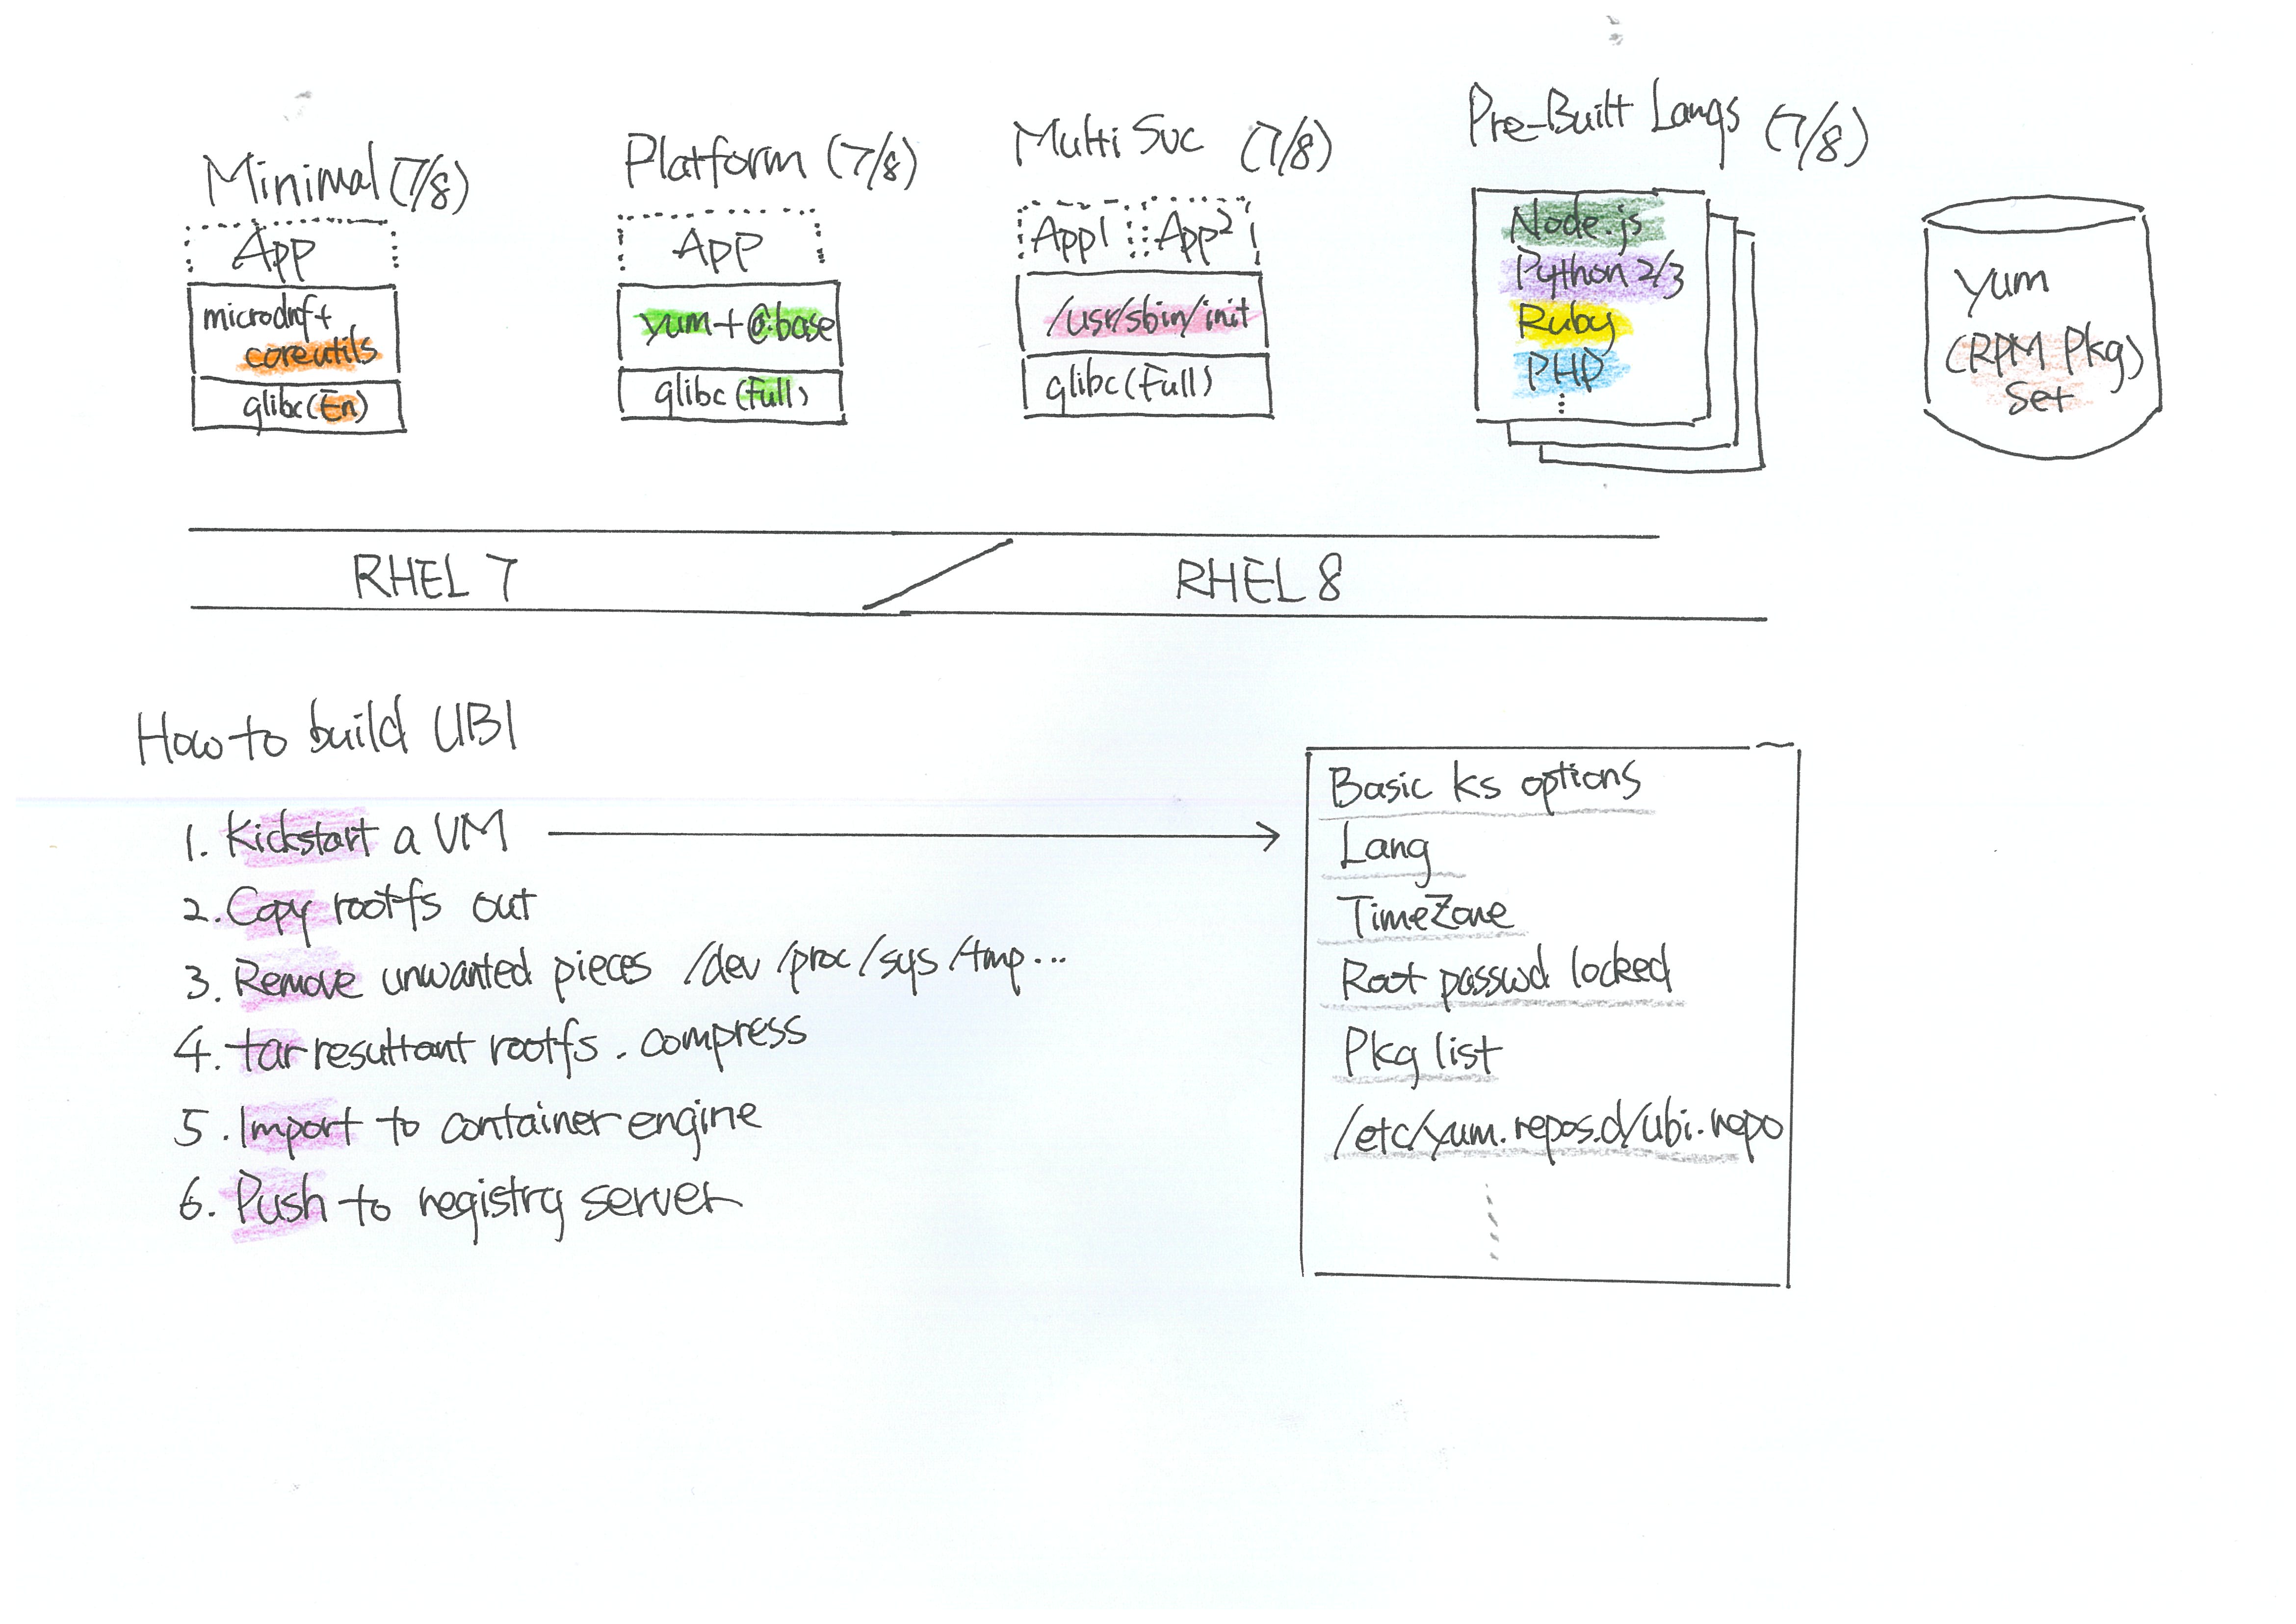 Minimal (7/8)
App
microdnf+
coreutils
glibc(En)
Platform (7/8)
App
yum+@base
glibc (Full)
Multi Svc (7/8)
App1 App2
/usr/sbin/init
glibc(Full)
Pre-Built Langs (7/8)
Node.js
Python 2/3
Ruby
PHP
⋮
yum
(RPM Pkg)
Set
RHEL 7 / RHEL 8
How to build UBI
1. Kickstart a VM
2. Copy rootfs out
3. Remove unwanted pieces /dev /proc /sys /tmp...
4. tar resultant rootfs. compress
5. Import to container engine
6. Push to registry server
Basic ks options
Lang
TimeZone
Root passwd locked
Pkg list
/etc/yum.repos.d/ubi.repo